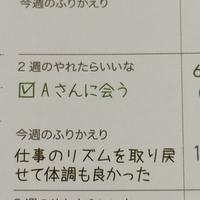 今週のふりかえり
2週のやれたらいいな
☑ Aさんに会う
今週のふりかえり
仕事のリズムを取り戻
せて体調も良かった